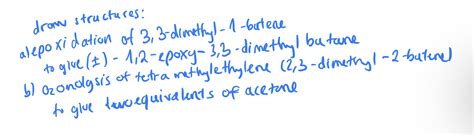 draw structures:
a) epoxidation of 3,3-dimethyl-1-butene
to give (±)-1,2-epoxy-3,3-dimethyl butane
b) ozonolysis of tetramethylethylene (2,3-dimethyl-2-butene)
to give two equivalents of acetone